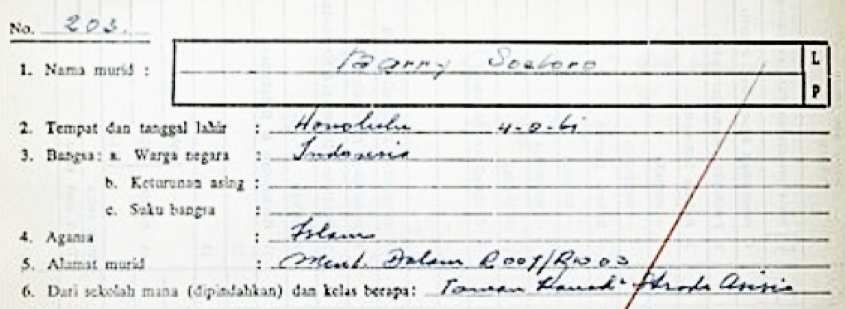 No. 203.
1. Nama murid : Barry Soetoro L
P
2. Tempat dan tanggal lahir : Honolulu 4-8-61
3. Bangsa : a. Warga negara : Indonesia
b. Keturunan asing :
c. Suku bangsa :
4. Agama : Islam
5. Alamat murid : Ment. Dalam R001/Rw03
6. Dari sekolah mana (dipindahkan) dan kelas berapa: Taman Asisia